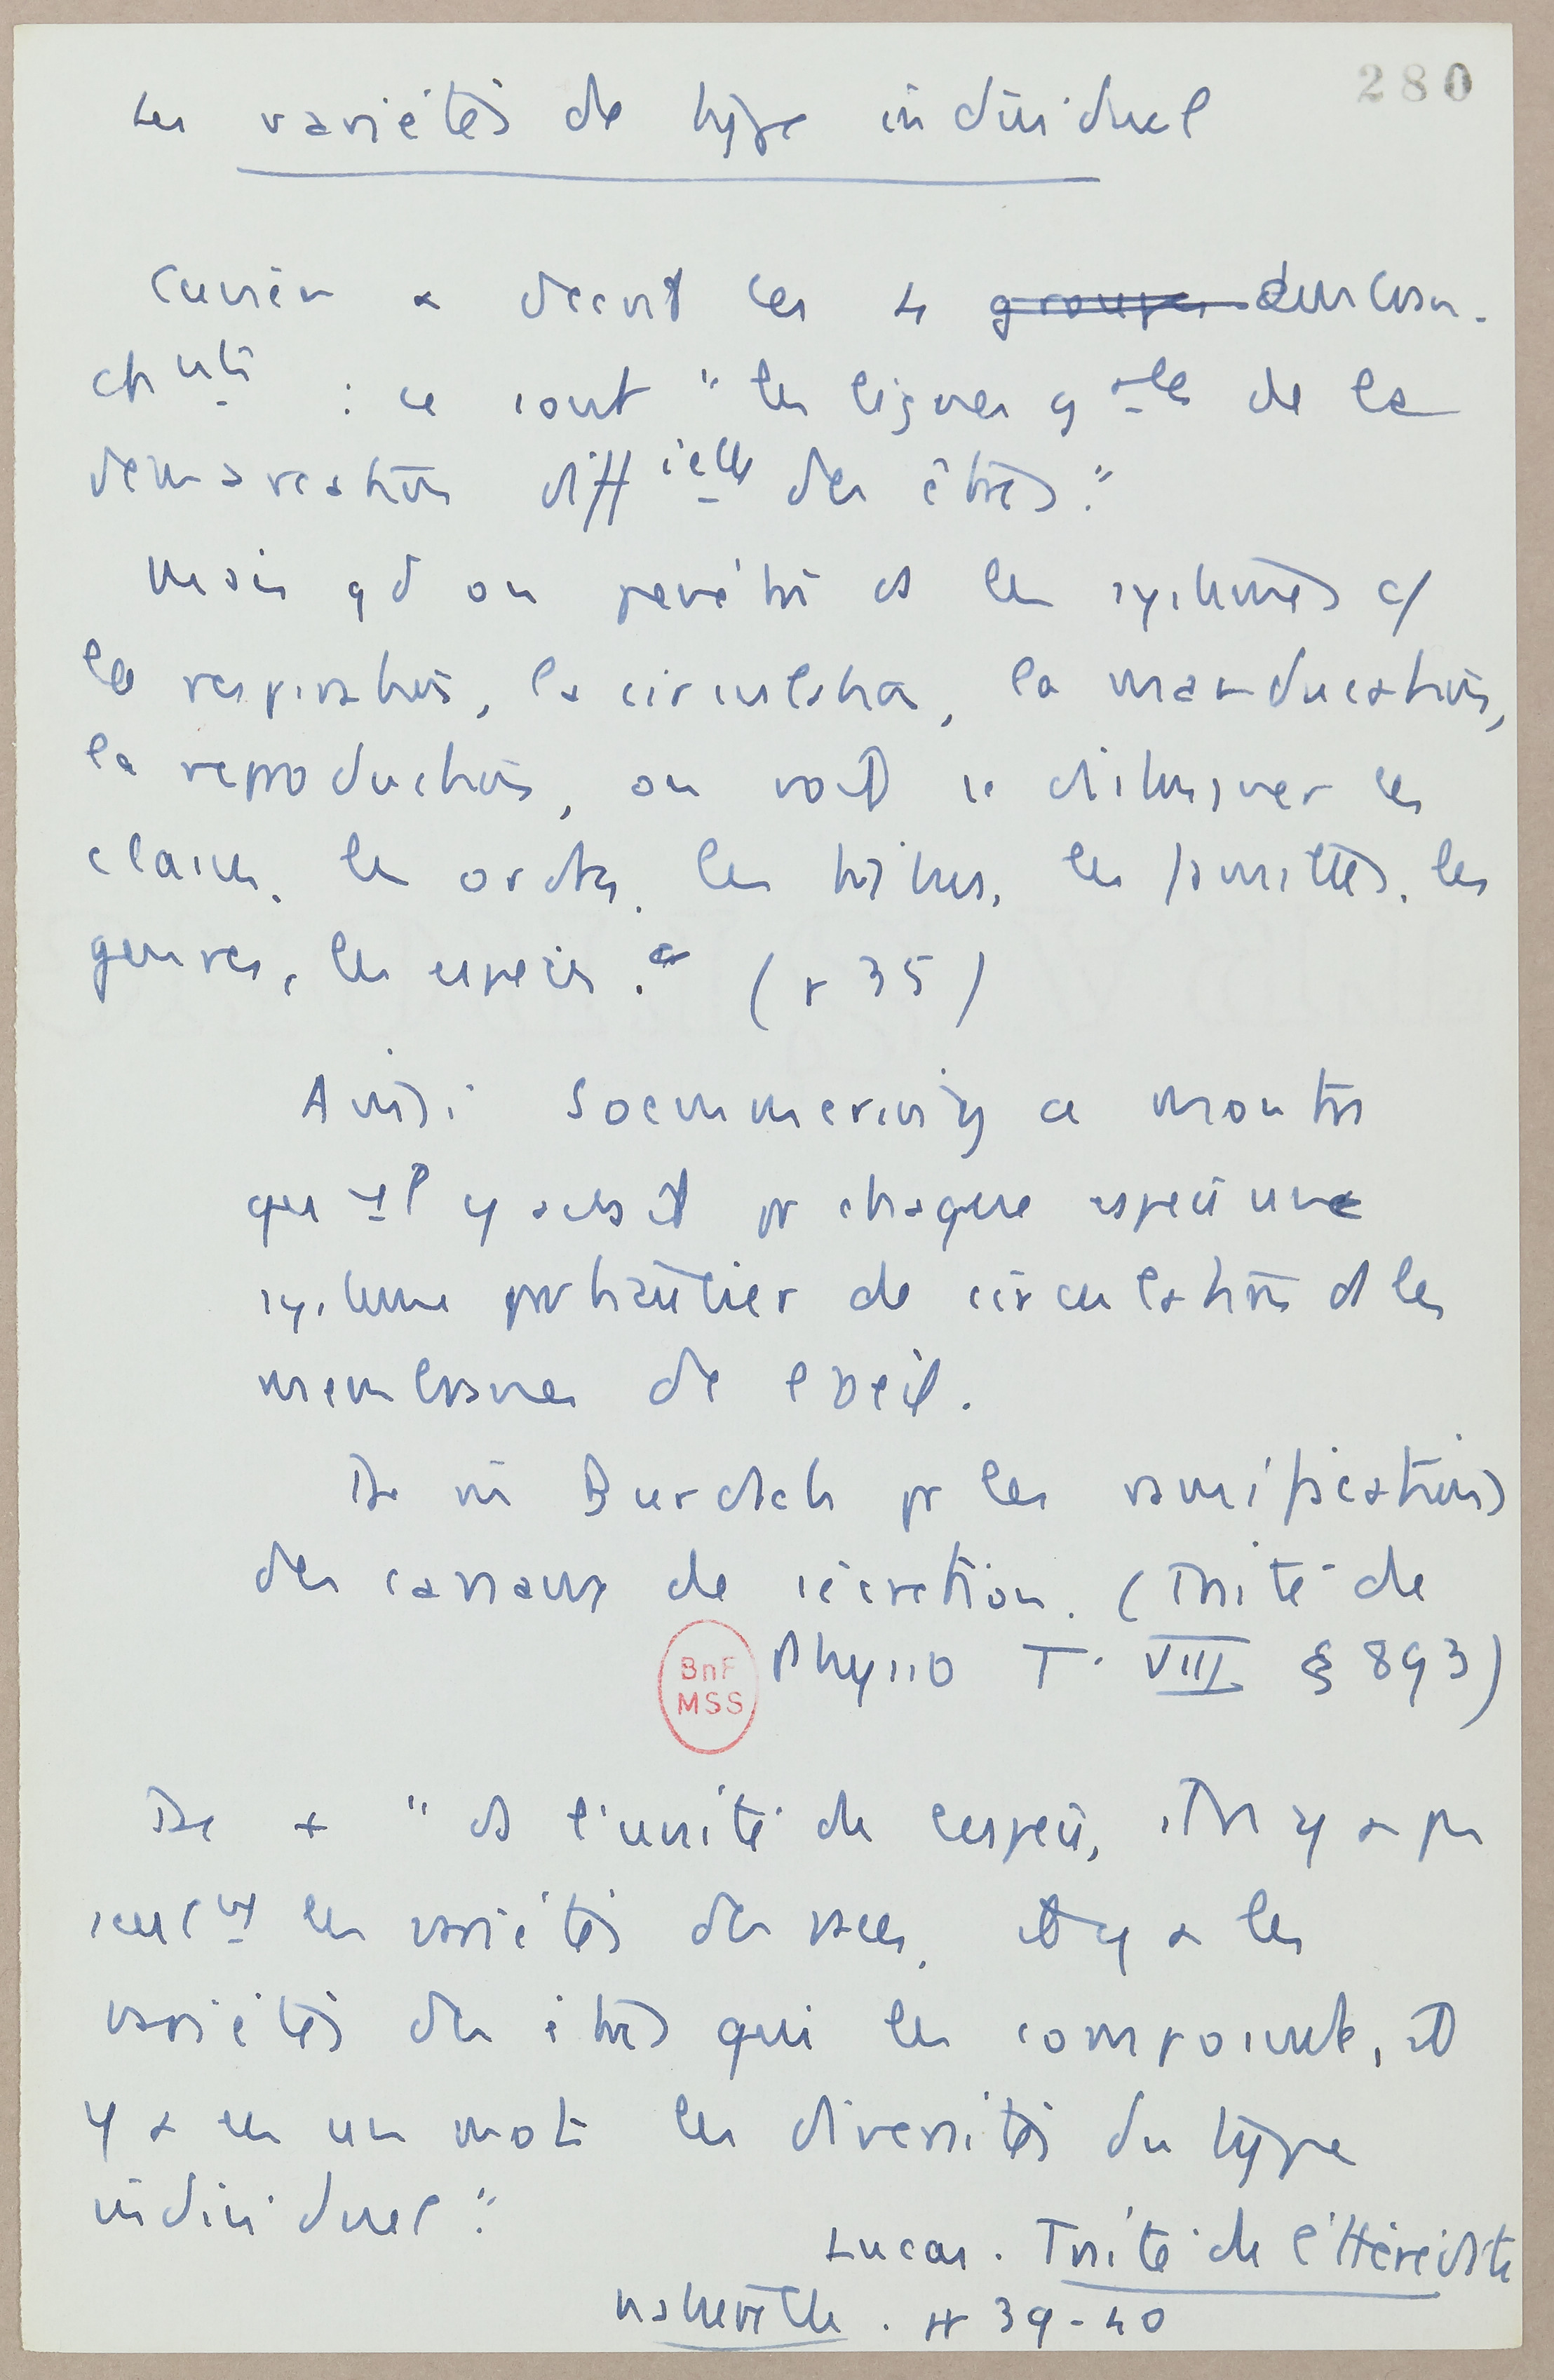 280
Les variétés de type individuel
Cuvier a décrit les 4 groupes embran-
chts : ce sont "les lignes gales de la
démarcation diffielle des êtres."
Mais qd on pénètre ds les systèmes c/
la respiration, la circulation, la manducation,
la reproduction, on voit se dessiner les
classes, les ordres, les tribus, les familles, les
genres, les espèces." (p 35)
Ainsi Soemmering a montré
que il y avait pr chaque espèce une
système particulier de circulation ds les
membranes de l'oeil.
De m Burdach pr les ramifications
des canaux de sécrétion. (Traité de
Physio T. VIII § 893)
BnF
MSS
De + "ds l'unité de l'espèce, il n'y a pas
seult les variétés des races, il y a les
variétés des êtres qui les composent, il
y a en un mot les diversités du type
individuel."
Lucas. Traité de l'Hérédité
naturelle. pp 39-40